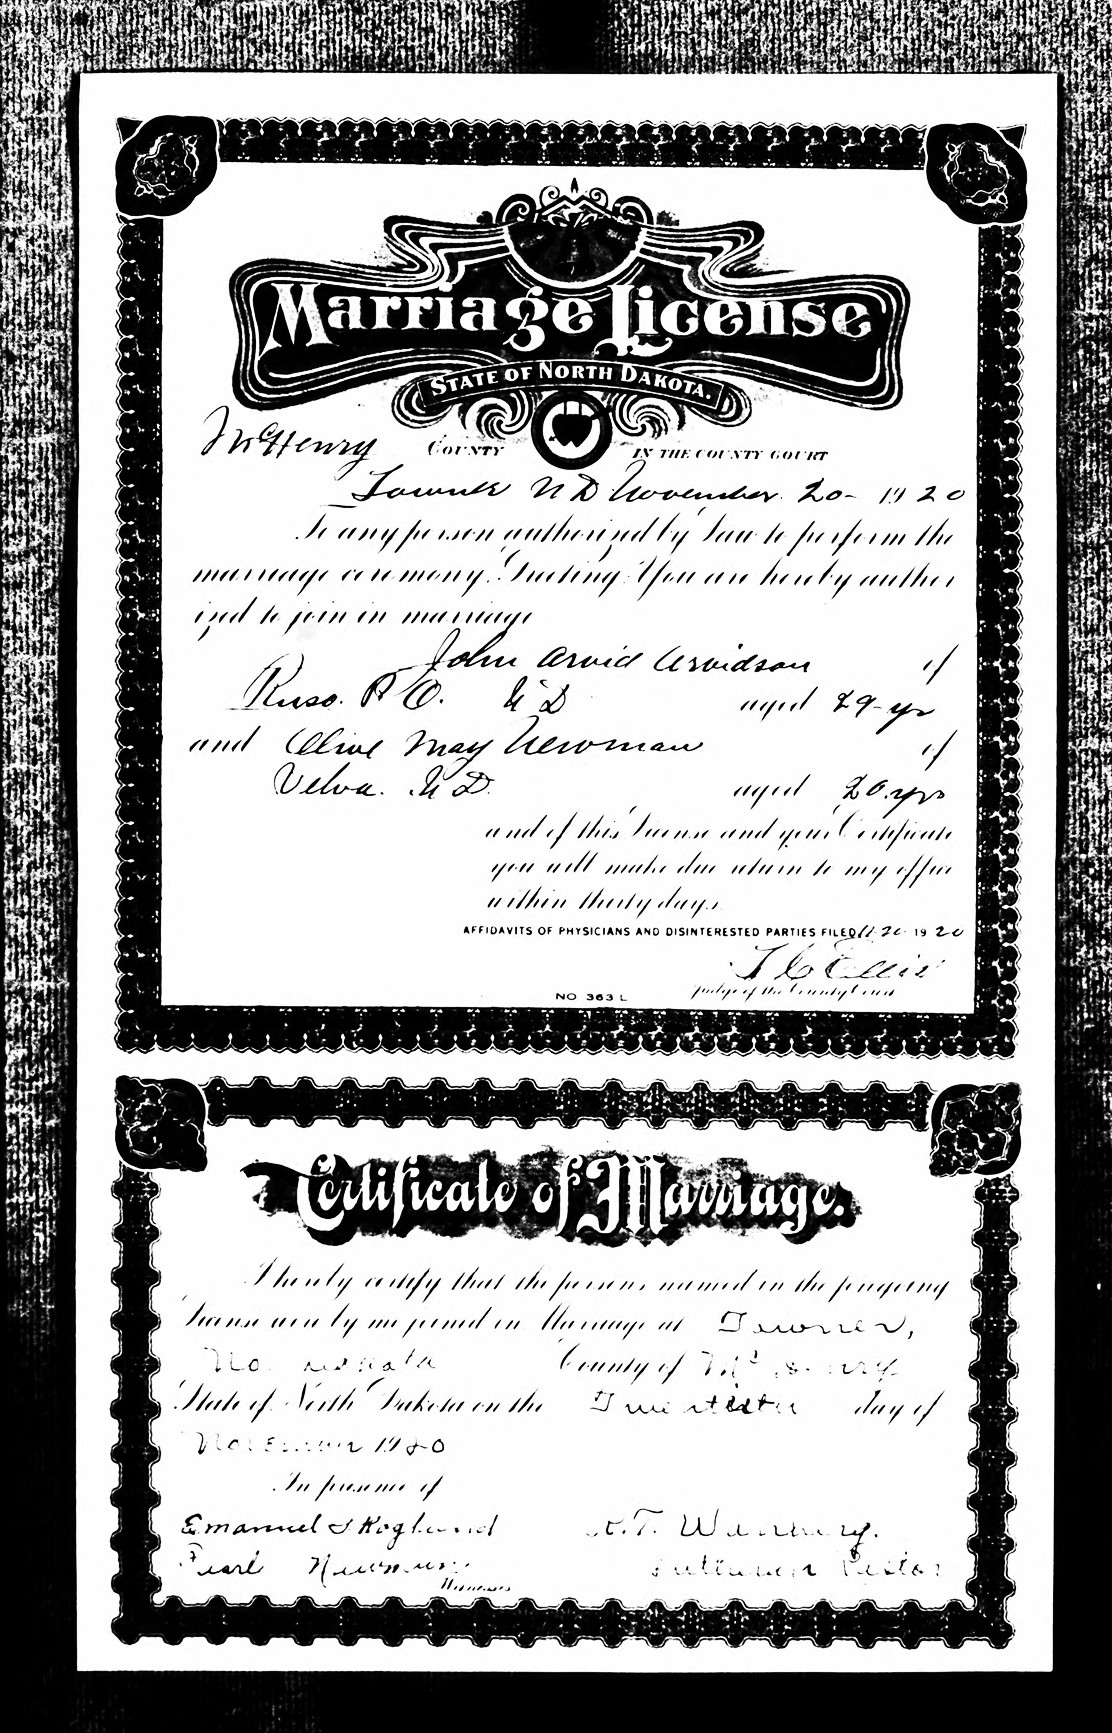 Marriage License
STATE OF NORTH DAKOTA.
McHenry COUNTY IN THE COUNTY COURT
Towner N D November 20- 1920
To any person authorized by law to perform the
marriage ceremony. Greeting: You are hereby author
ized to join in marriage
John Arvid Arvidson of
Ruso. P O. N D aged 29-yr
and Olive May Newman of
Velva. N D. aged 20.yrs
and of this License and your Certificate
you will make due return to my office
within thirty days.
AFFIDAVITS OF PHYSICIANS AND DISINTERESTED PARTIES FILED 11-20- 1920
Ellis
Judge of the County Court
NO 363 L
Certificate of Marriage.
I hereby certify that the persons named in the foregoing
license were by me joined in Marriage at Towner,
No. Dakota County of McHenry
State of North Dakota on the Twentieth day of
November 1920
In presence of
Emanuel Skoglund
Pearl Newman
Witnesses
Lutheran Pastor